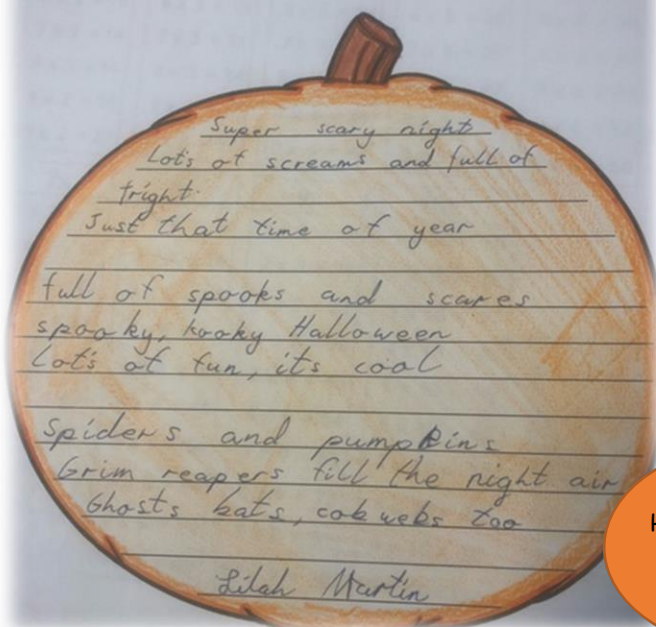 Super scary night
Lot's of screams and full of
fright.
Just that time of year
full of spooks and scares
spooky, kooky Halloween
Lot's of fun, it's cool
Spiders and pumpkins
Grim reapers fill the night air
Ghosts bats, cobwebs too
Lilah Martin